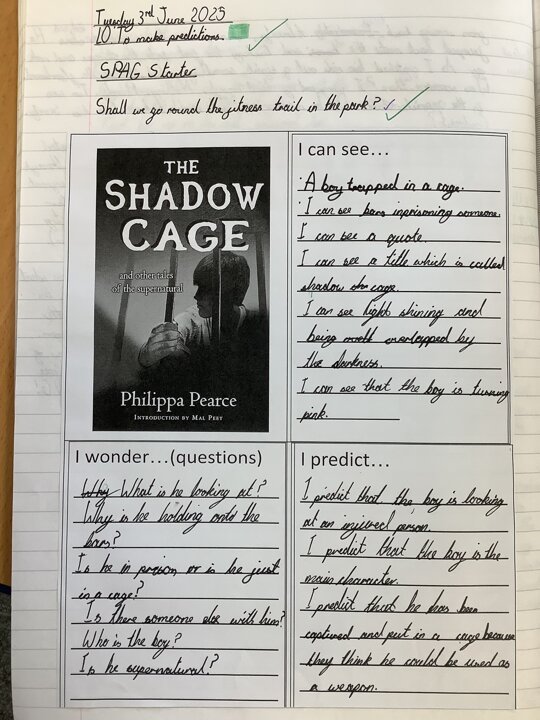 Tuesday 3rd June 2025
LO: To make predictions.
SPAG Starter
Shall we go round the fitness trail in the park?
THE
SHADOW
CAGE
and other tales
of the supernatural
Philippa Pearce
Introduction by Mal Peet
I can see...
A boy trapped in a cage.
I can see bars inprisoning someone.
I can see a quote.
I can see a title which is called
shadow cage.
I can see light shining and
being overlapped by
the darkness.
I can see that the boy is turning
pink.
I wonder...(questions)
Why What is he looking at?
Why is he holding onto the
bars?
Is he in prison or is he just
in a cage?
Is there someone else with him?
Who is the boy?
Is he supernatural?
I predict...
I predict that the boy is looking
at an injured person.
I predict that the boy is the
main character.
I predict that he has been
captured and put in a cage because
they think he could be used as
a weapon.